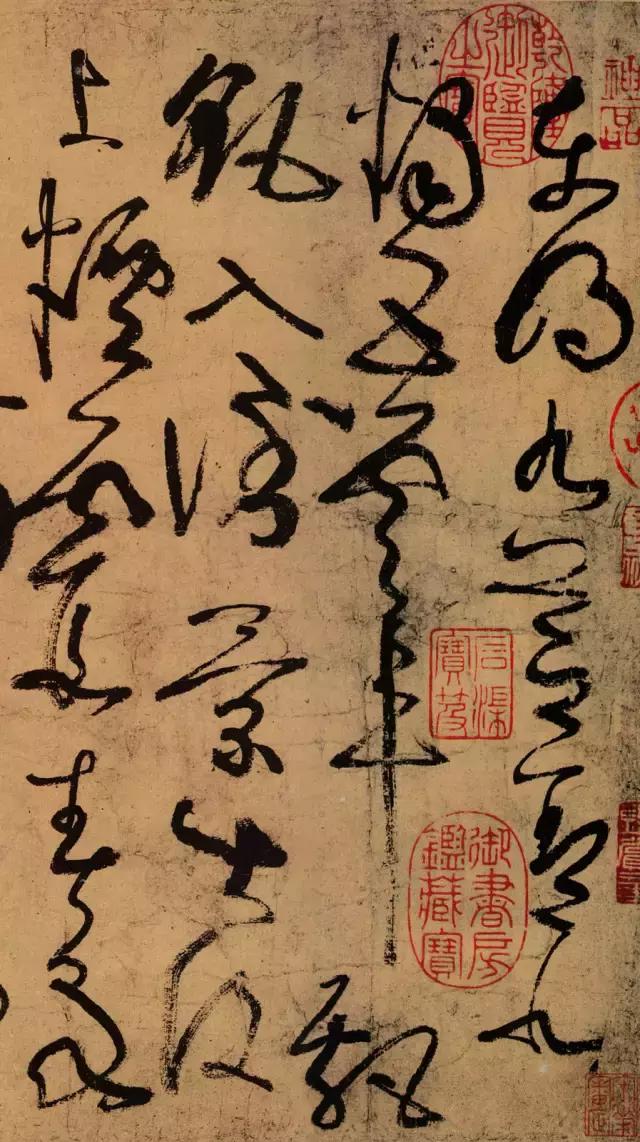 東明九芝蓋北
燭五雲車飄
颻入倒景出沒
上煙霞春泉
神品
乾隆御覽之寶
石渠寶笈
御書房鑑藏寶